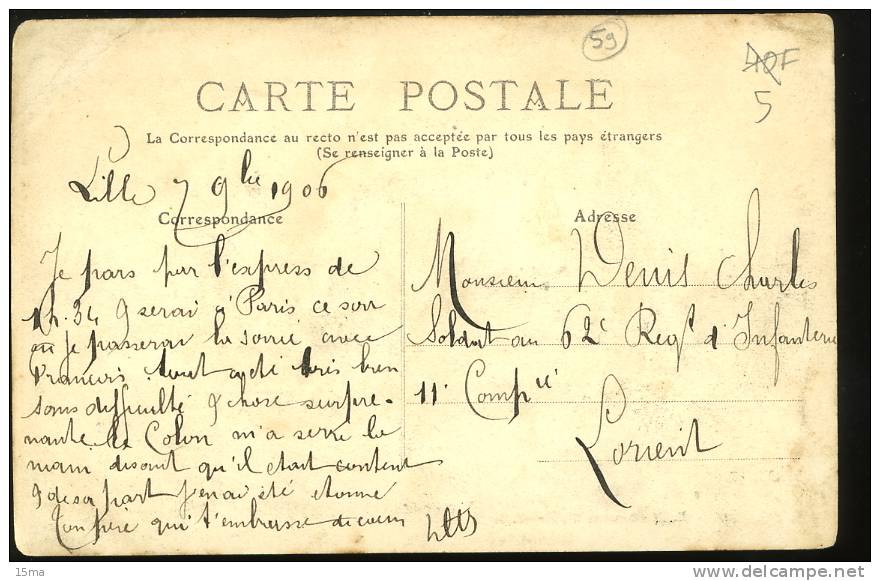 59
5
CARTE POSTALE
La Correspondance au recto n'est pas acceptée par tous les pays étrangers
(Se renseigner à la Poste)
Lille 7 9bre 1906
Correspondance
Adresse
Je pars par l'express de
1h.34 & serai à Paris ce soir
où je passerai la soirée avec
Francis. tout a été très bien
sans difficulté & chose surpre-
nante le Colon m'a serré la
main disant qu'il était content
& de sa part j'en ai été étonné
Ton père qui t'embrasse de coeur
Monsieur Denis Charles
Soldat au 62e Regt d'Infanterie
11e Compie
Lorient
15ma
www.delcampe.net